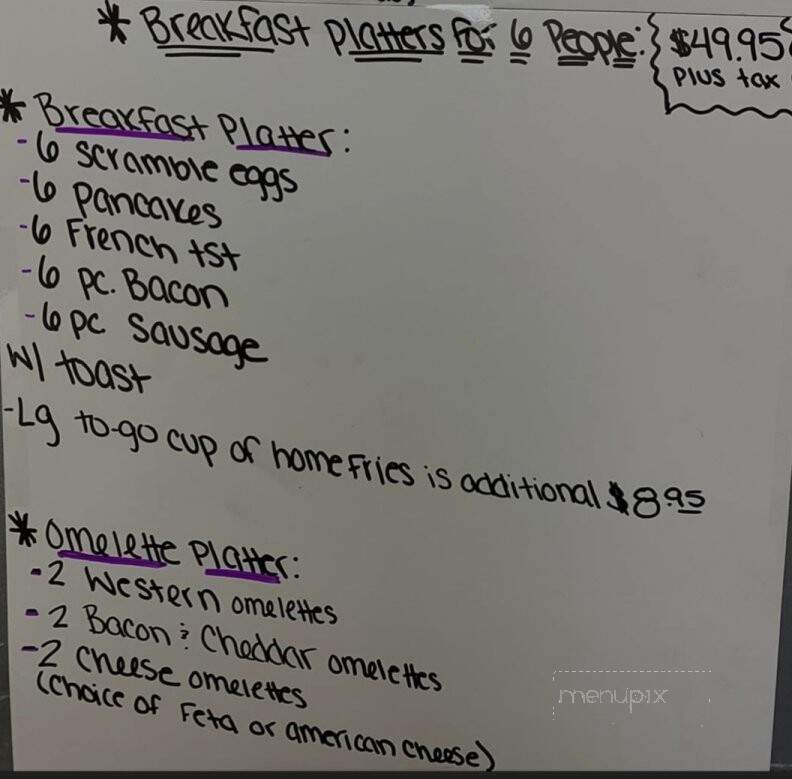 * Breakfast Platters For 6 People: $49.95
Plus tax
* Breakfast Platter:
-6 scramble eggs
-6 Pancakes
-6 French tst
-6 pc. Bacon
-6 pc sausage
W/ toast
-Lg to-go cup of home fries is additional $8.95
* Omelette Platter:
-2 Western omelettes
-2 Bacon & Cheddar omelettes
-2 cheese omelettes
(Choice of Feta or american cheese)
menupix